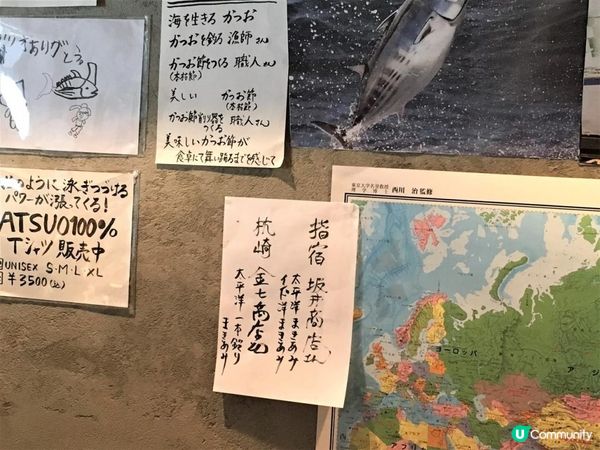 かつおありがとう
海を生きる かつお
かつおを釣る 漁師さん
かつお節をつくる 職人さん
(本枯節)
美しい かつお節
(本枯節)
かつお節削り器を
つくる 職人さん
美味しいかつお節が
食卓にて舞い踊るまでを感じて
のように泳ぎつづける
パワーが漲ってくる!
ATSUO100%
Tシャツ 販売中
UNISEX S・M・L・XL
¥3500(込)
指宿 坂井商店さん
太平洋まきあみ
インド洋まきあみ
枕崎 金七商店さん
太平洋 一本釣り
まきあみ
東京大学名誉教授
理学博士 西川 治 監修
ヨーロッパ
ア
アフリ
U Community